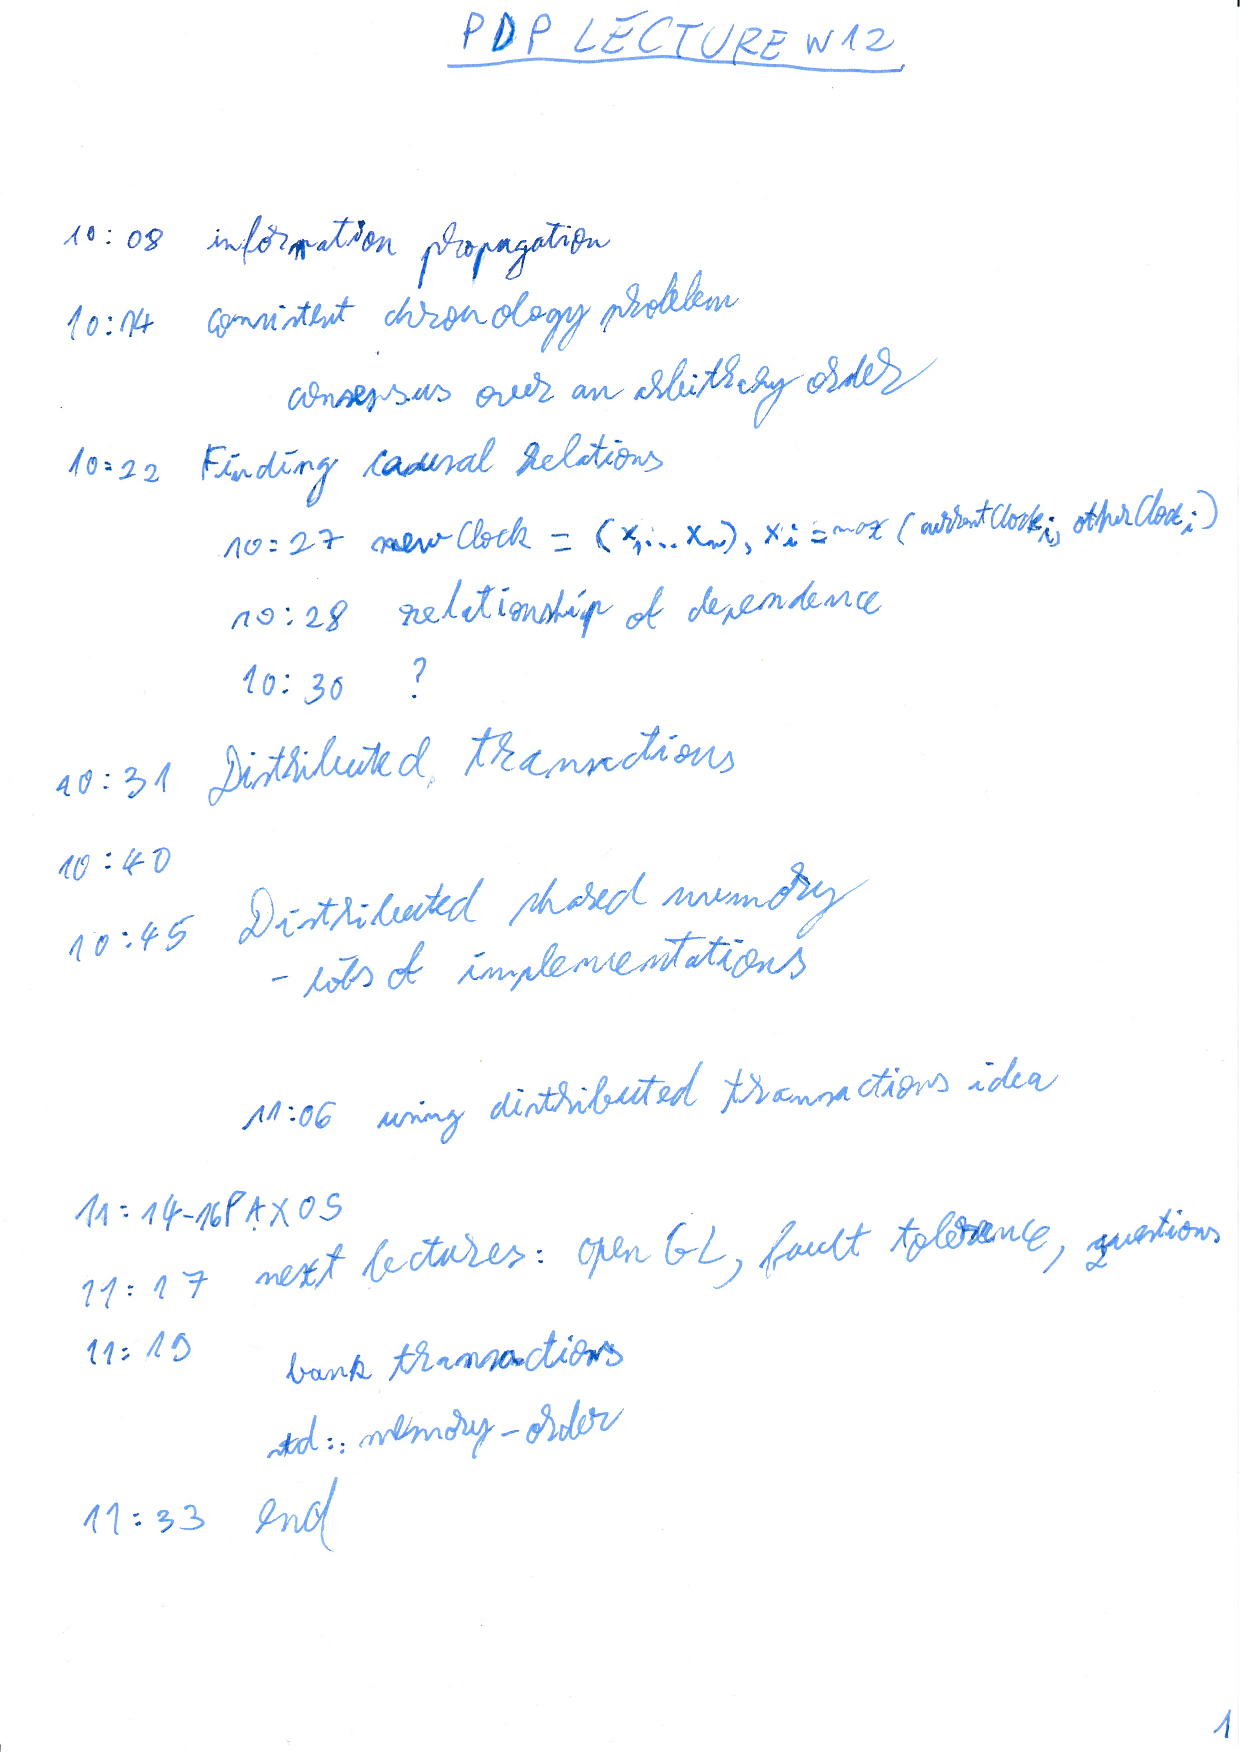 PDP LECTURE W12
10:08 information propagation
10:14 consistent chronology problem
consensus over an arbitrary order
10:22 Finding causal relations
10:27 newClock = (x1...xn), xi = max(currentClocki, otherClocki)
10:28 relationship of dependence
10:30 ?
10:31 Distributed transactions
10:40
10:45 Distributed shared memory
- lots of implementations
11:06 using distributed transactions idea
11:14-16 PAXOS
11:17 next lectures: open GL, fault tolerance, questions
11:19 bank transactions
std::memory-order
11:33 end
1